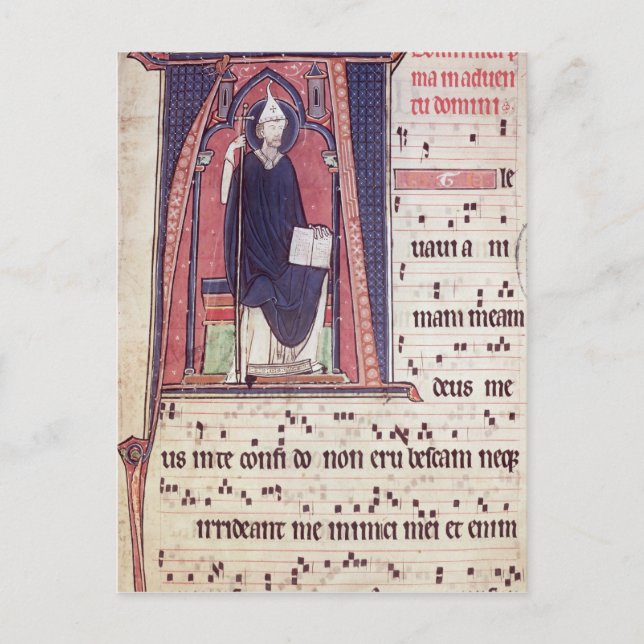 Dominica p
ma in aduen
tu domini
le
uaui a ni
mam meam
deus me
us in te confi do non eru bescam neqꝫ
irrideant me inimici mei et enim